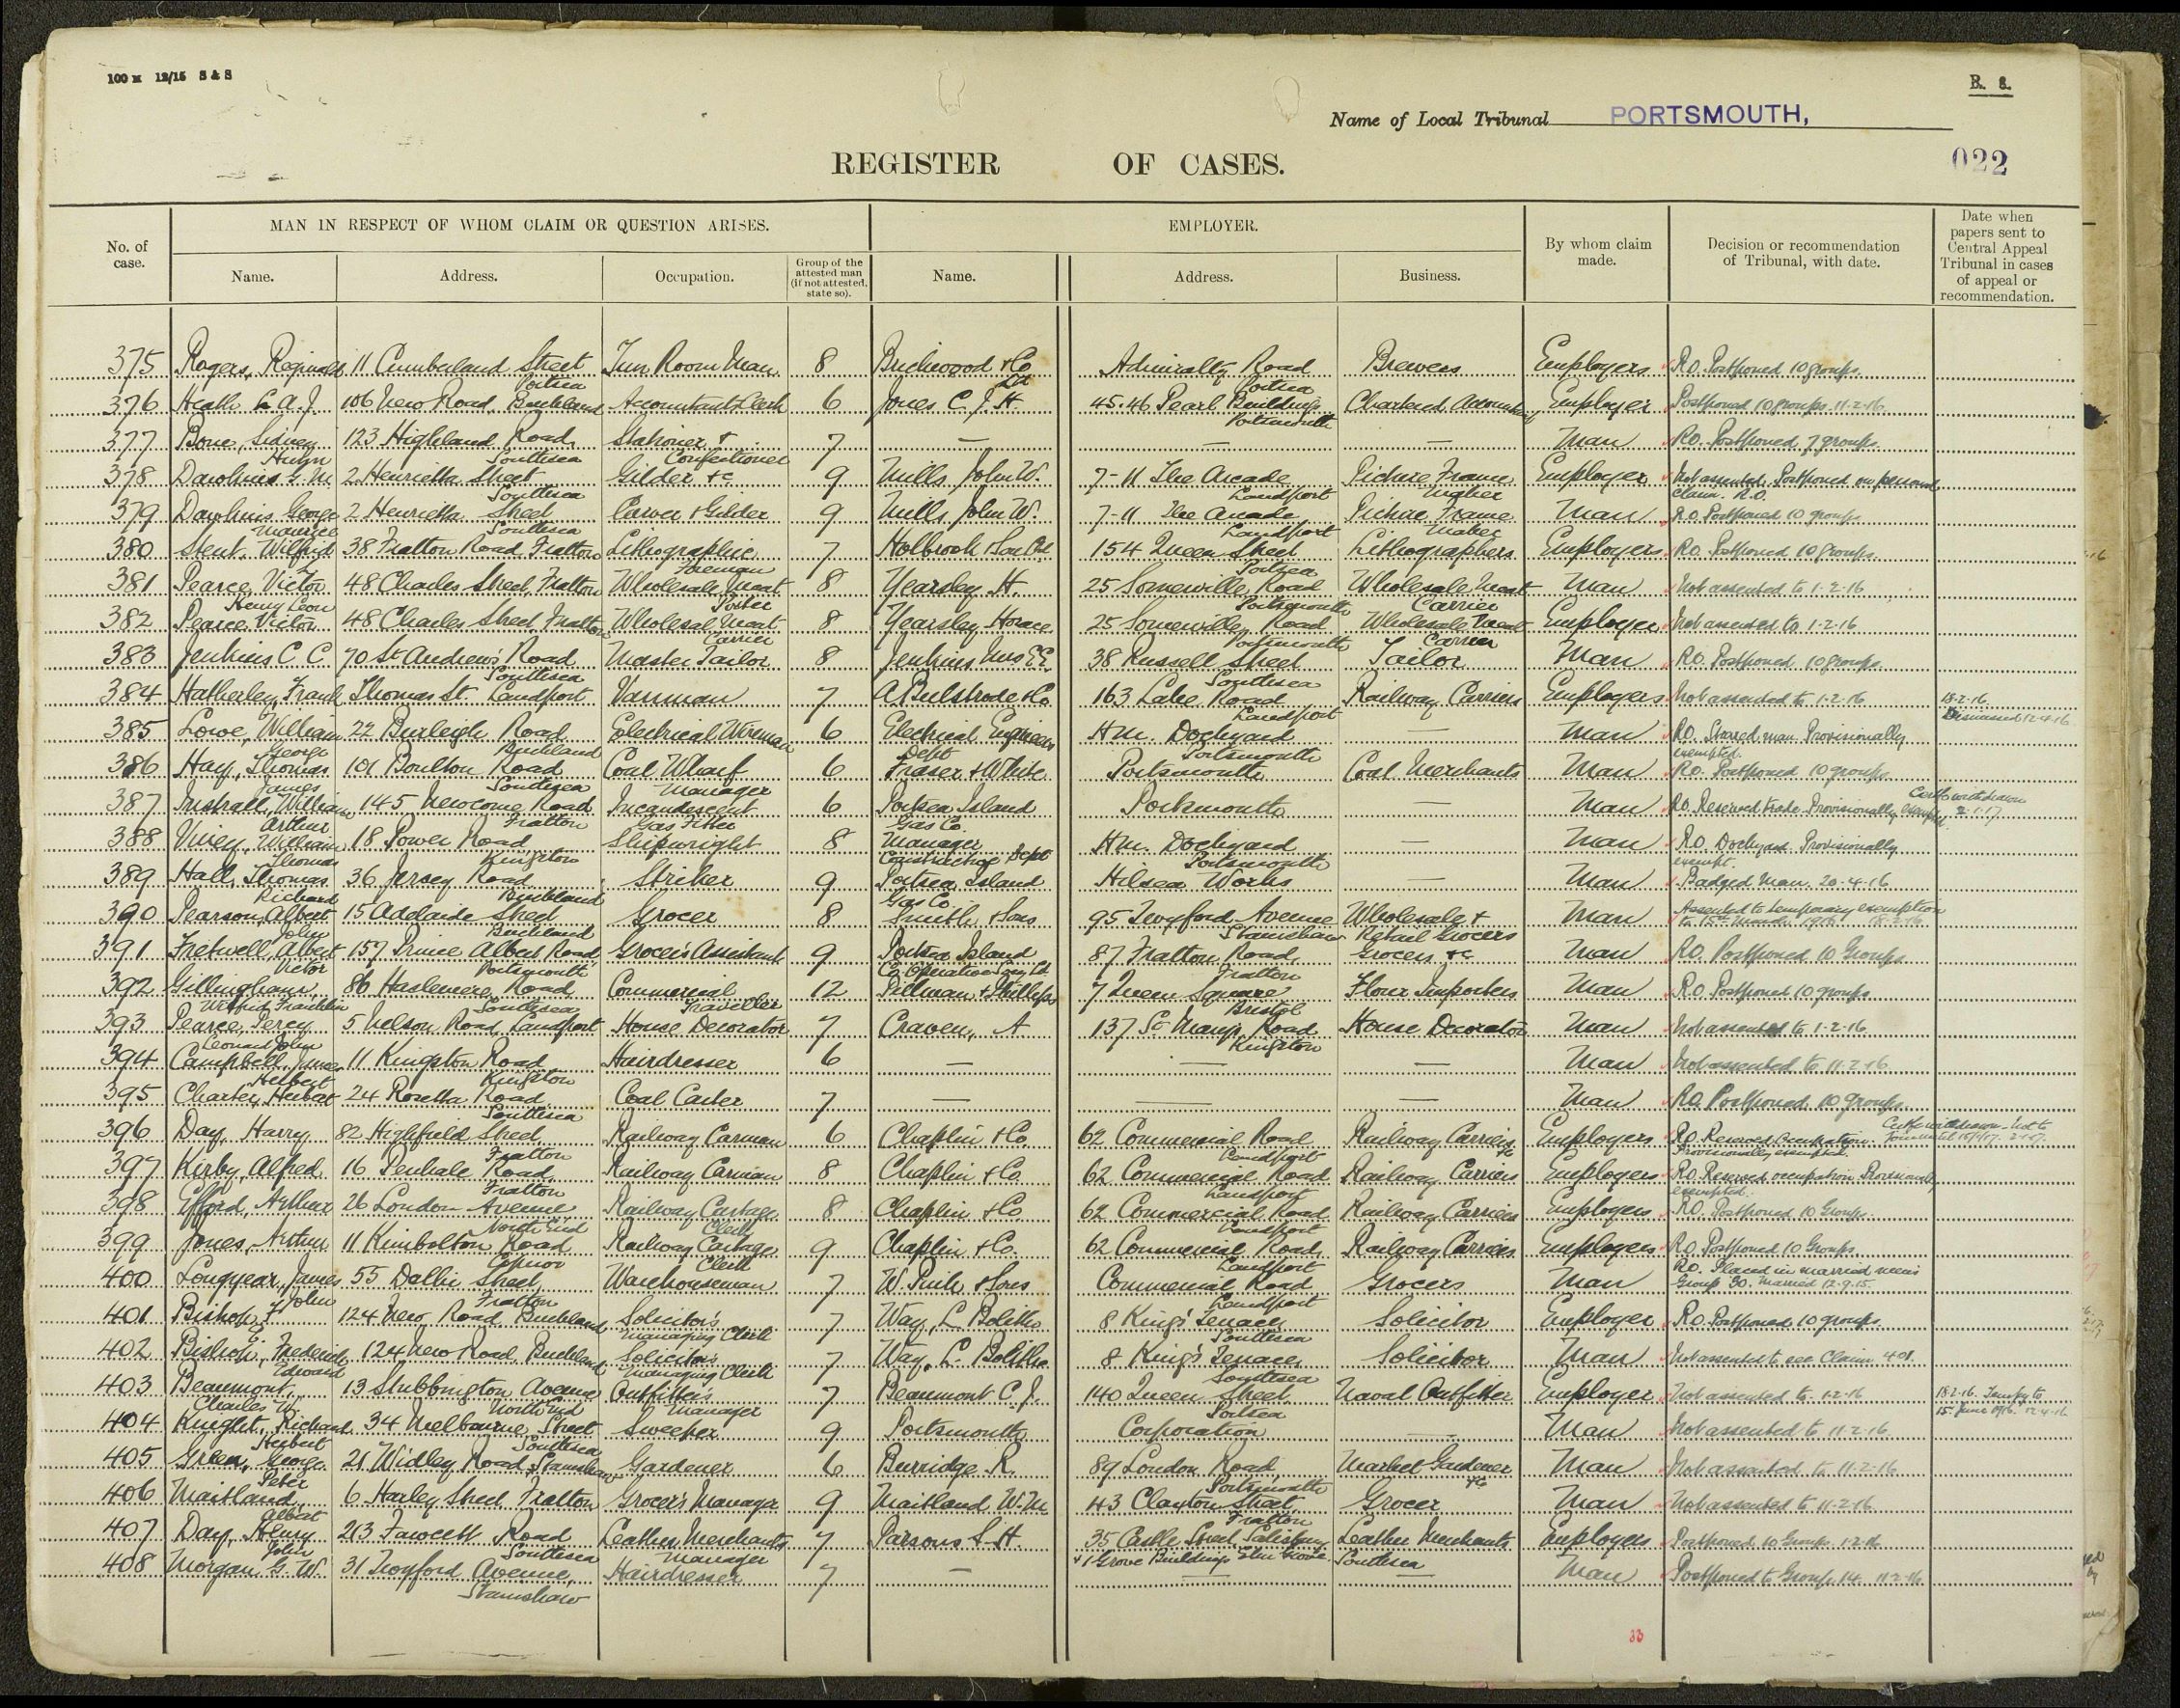 100 M 12/15 S & S
B. 8.
Name of Local Tribunal PORTSMOUTH,
REGISTER OF CASES.
022
No. of case.
MAN IN RESPECT OF WHOM CLAIM OR QUESTION ARISES.
EMPLOYER.
By whom claim made.
Decision or recommendation of Tribunal, with date.
Date when papers sent to Central Appeal Tribunal in cases of appeal or recommendation.
Name. Address. Occupation. Group of the attested man (if not attested, state so). Name. Address. Business.
375 Rogers, Reginald 11 Cumberland Street Portsea Tun Room Man 8 Brickwood & Co Ld Admiralty Road Portsea Brewers Employers R.O. Postponed 10 groups.
376 Heath L. A. J. 106 New Road, Buckland Accountants Clerk 6 Jones C. J. H. 45.46 Pearl Buildings Portsmouth Chartered Employer Postponed 10 groups. 11-2-16
377 Bone, Sidney 123 Highland Road, Southsea Stationer & Confectioner 7 — — — Man R.O. Postponed 7 groups.
378 G. M. 2 Henrietta Street Southsea Gilder &c 9 Mills, John W. 7-11 The Arcade Landport Picture Frame Maker Employer Not assented Postponed on personal claim. R.O.
379 George Maurice 2 Henrietta Street Southsea Carver & Gilder 9 Mills John W. 7-11 The Arcade Landport Picture Frame Maker Man R.O Postponed 10 groups
380 Stent, Wilfrid 38 Fratton Road, Fratton Lithographic Foreman 7 Holbrook & Son Ld. 154 Queen Street Portsea Lithographers Employers R.O. Postponed 10 groups.
381 Pearce, Victor Henry Leon 48 Charles Street, Fratton Wholesale Meat Porter 8 Yearsley H. 25 Somerville Road Portsmouth Wholesale Meat Carrier Man Not assented to 1-2-16
382 Pearce, Victor 48 Charles Street, Fratton Wholesal Meat Carrier 8 Yearsley Horace 25 Somerville Road Portsmouth Wholesale Meat Carrier Employer Not assented to 1-2-16
383 Jenkins C. C. 70 St Andrew's Road Southsea Master Tailor 8 Jenkins Mrs E.E. 38 Russell Street Southsea Tailor Man R.O. Postponed 10 groups.
384 Hatherley, Frank Thomas St. Landport Vanman 7 A. Bulstrode & Co. 163 Lake Road Landport Railway Carriers Employers Not assented to 1-2-16 18-2-16. Dismissed 12-4-16.
385 Lowe, William George 22 Burleigh Road Buckland Electrical Wireman 6 Electrical Engineers Dept H.M. Dockyard Portsmouth — Man R.O. Starred man Provisionally exempted.
386 Hay, Thomas James 101 Boulton Road Southsea Coal Wharf Manager 6 Fraser & White Portsmouth Coal Merchants Man R.O. Postponed 10 groups.
387 William Arthur 145 Newcome Road Fratton Incandescent Gas Fitter 6 Portsea Island Gas Co. Portsmouth — Man R.O. Reserved trade. Provisionally exempted. Certfe withdrawn 2-1-17.
388 William Thomas 18 Power Road Kingston Shipwright 8 Manager Constructive Dept H.M. Dockyard Portsmouth — Man R.O. Dockyard. Provisionally exempt.
389 Hall, Thomas Richard 36 Jersey Road Buckland Striker 9 Portsea Island Gas Co. Hilsea Works — Man Badged Man. 20-4-16
390 Pearson, Albert John 15 Adelaide Street Buckland Grocer 8 Smith & Sons 95 Twyford Avenue Stamshaw Wholesale & Retail Grocers Man Assented to temporary exemption to 15th March 1916 18-2-16
391 Fretwell, Albert Victor 157 Prince Albert Road, Portsmouth Grocer's Assistant 9 Portsea Island Co-Operative Socy Ld. 87 Fratton Road, Fratton Grocers &c Man R.O. Postponed 10 Groups
392 Gillingham, Wilfrid Franklin 86 Haslemere Road Southsea Commercial Traveller 12 Pillman & Phillips 7 Queen Square Bristol Flour Importers Man R.O Postponed 10 groups
393 Pearce, Percy Leonard John 5 Nelson Road, Landport House Decorator 7 Craven, A 137 St Mary's Road Kingston House Decorator Man Not assented to 1-2-16
394 Campbell, James Herbert 11 Kingston Road Kingston Hairdresser 6 — — — Man Not assented to 11-2-16.
395 Charter, Herbert 24 Rosetta Road Southsea Coal Carter 7 — — — Man R.O. Postponed. 10 groups.
396 Day, Harry 82 Highfield Street Fratton Railway Carman 6 Chaplin & Co. 62 Commercial Road Landport Railway Carriers &c Employers R.O. Reserved Occupation. Provisionally exempted. Certfe withdrawn. Not to
397 Kirby, Alfred 16 Penhale Road, Fratton Railway Carman 8 Chaplin & Co. 62 Commercial Road Landport Railway Carriers Employers R.O. Reserved occupation Provisionally exempted.
398 Efford, Arthur 26 London Avenue, North End Railway Cartage Clerk 8 Chaplin & Co. 62 Commercial Road Landport Railway Carriers Employers R.O. Postponed 10 Groups
399 Jones, Arthur 11 Kimbolton Road Copnor Railway Cartage Clerk 9 Chaplin & Co. 62 Commercial Road, Landport Railway Carriers Employers R.O. Postponed 10 Groups
400 Longyear, James John 55 Dalbie Street Fratton Warehouseman 7 W. Pink & Sons Commercial Road Landport Grocers Man R.O. Placed in married men's Group 30. Married 12-9-15.
401 Bishop, F. E. 124 New Road Buckland Solicitor's Managing Clerk 7 Way, L. Bolitho 8 King's Terrace Southsea Solicitor Employer R.O. Postponed 10 groups.
402 Bishop, Frederick Edward 124 New Road, Buckland Solicitor's Managing Clerk 7 Way, L. Bolitho 8 King's Terrace, Southsea Solicitor Man Not assented to see Claim 401.
403 Beaumont, Charles W. 13 Stubbington Avenue North End Outfitter's Manager 7 Beaumont C. J. 140 Queen Street Portsea Naval Outfitter Employer Not assented to. 1-2-16 18-2-16. Tempy to 15 June 1916. 12-4-16
404 Knight, Richard Herbert 34 Melbourne Street Southsea Sweeper 9 Portsmouth Corporation — Man Not assented to 11-2-16.
405 Green, George Peter 21 Widley Road, Stamshaw Gardener 6 Burridge R. 89 London Road, Portsmouth Market Gardener &c Man Not assented to 11-2-16
406 Maitland, Albert 6 Harley Street Fratton Grocer's Manager 9 Maitland W. M 43 Claxton Street, Fratton Grocer Man Not assented to 11-2-16.
407 Day, Henry John 213 Fawcett Road Southsea Leather Merchants Manager 7 Parsons & H. 35 Castle Street, Salisbury & 1 Grove Buildings Elm Grove Southsea Leather Merchants Employers Postponed 10 Groups. 1-2-16
408 Morgan G. W. 31 Twyford Avenue, Stamshaw Hairdresser 7 — — — Man Postponed to Group 14. 11-2-16
33